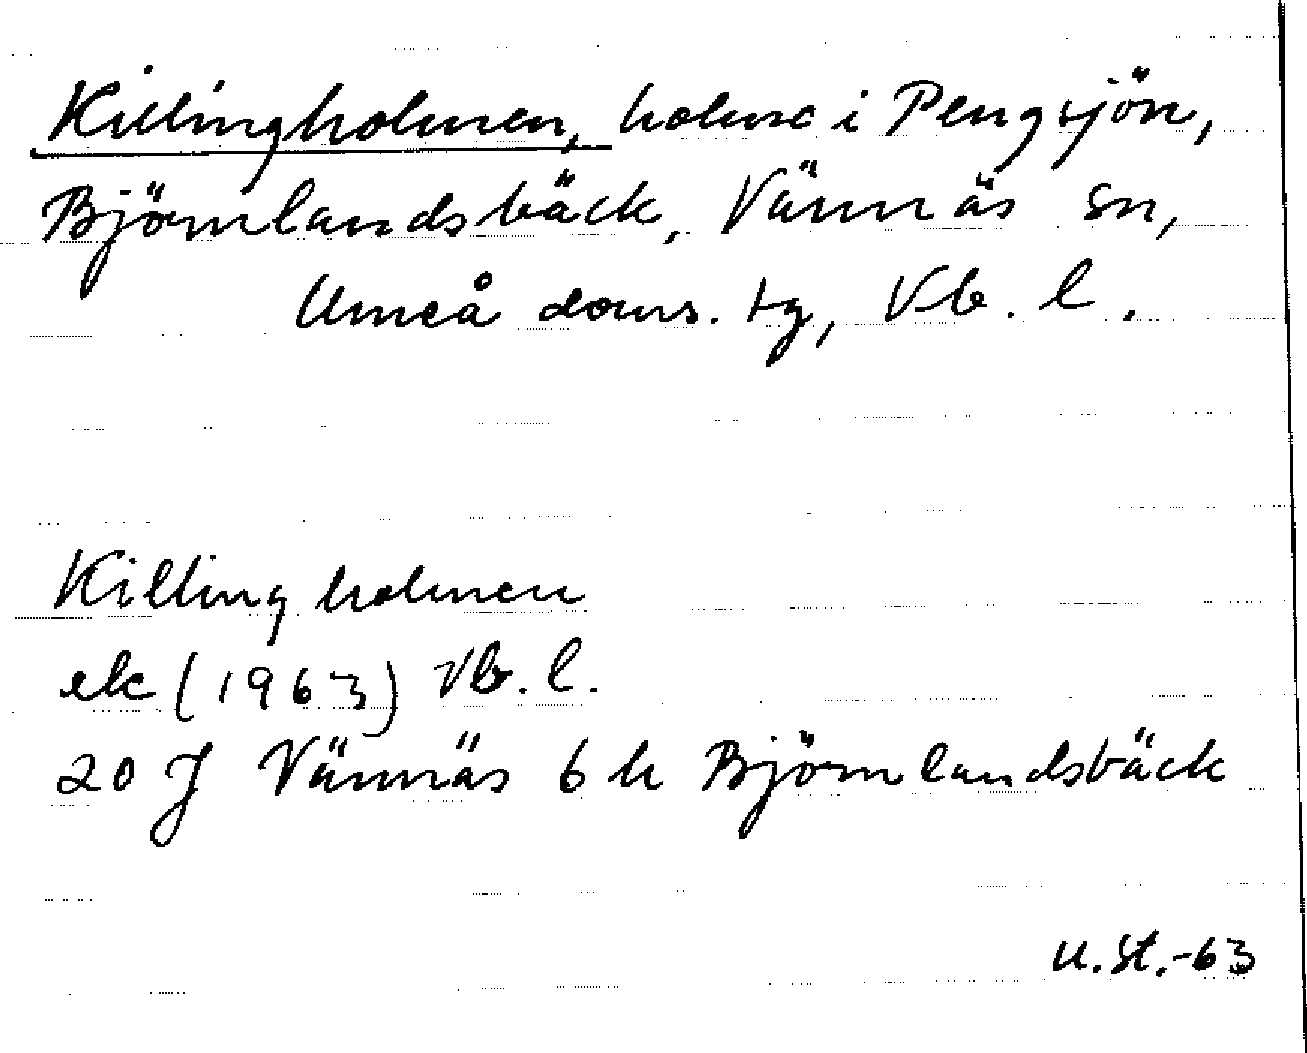 Killingholmen, holme i Pengsjön,
Björnlandsbäck, Vännäs sn,
Umeå doms. tg, Vb. l.
Killingholmen
ek (1963) Vb. l.
20 J Vännäs 6 h Björnlandsbäck
U.St.-63